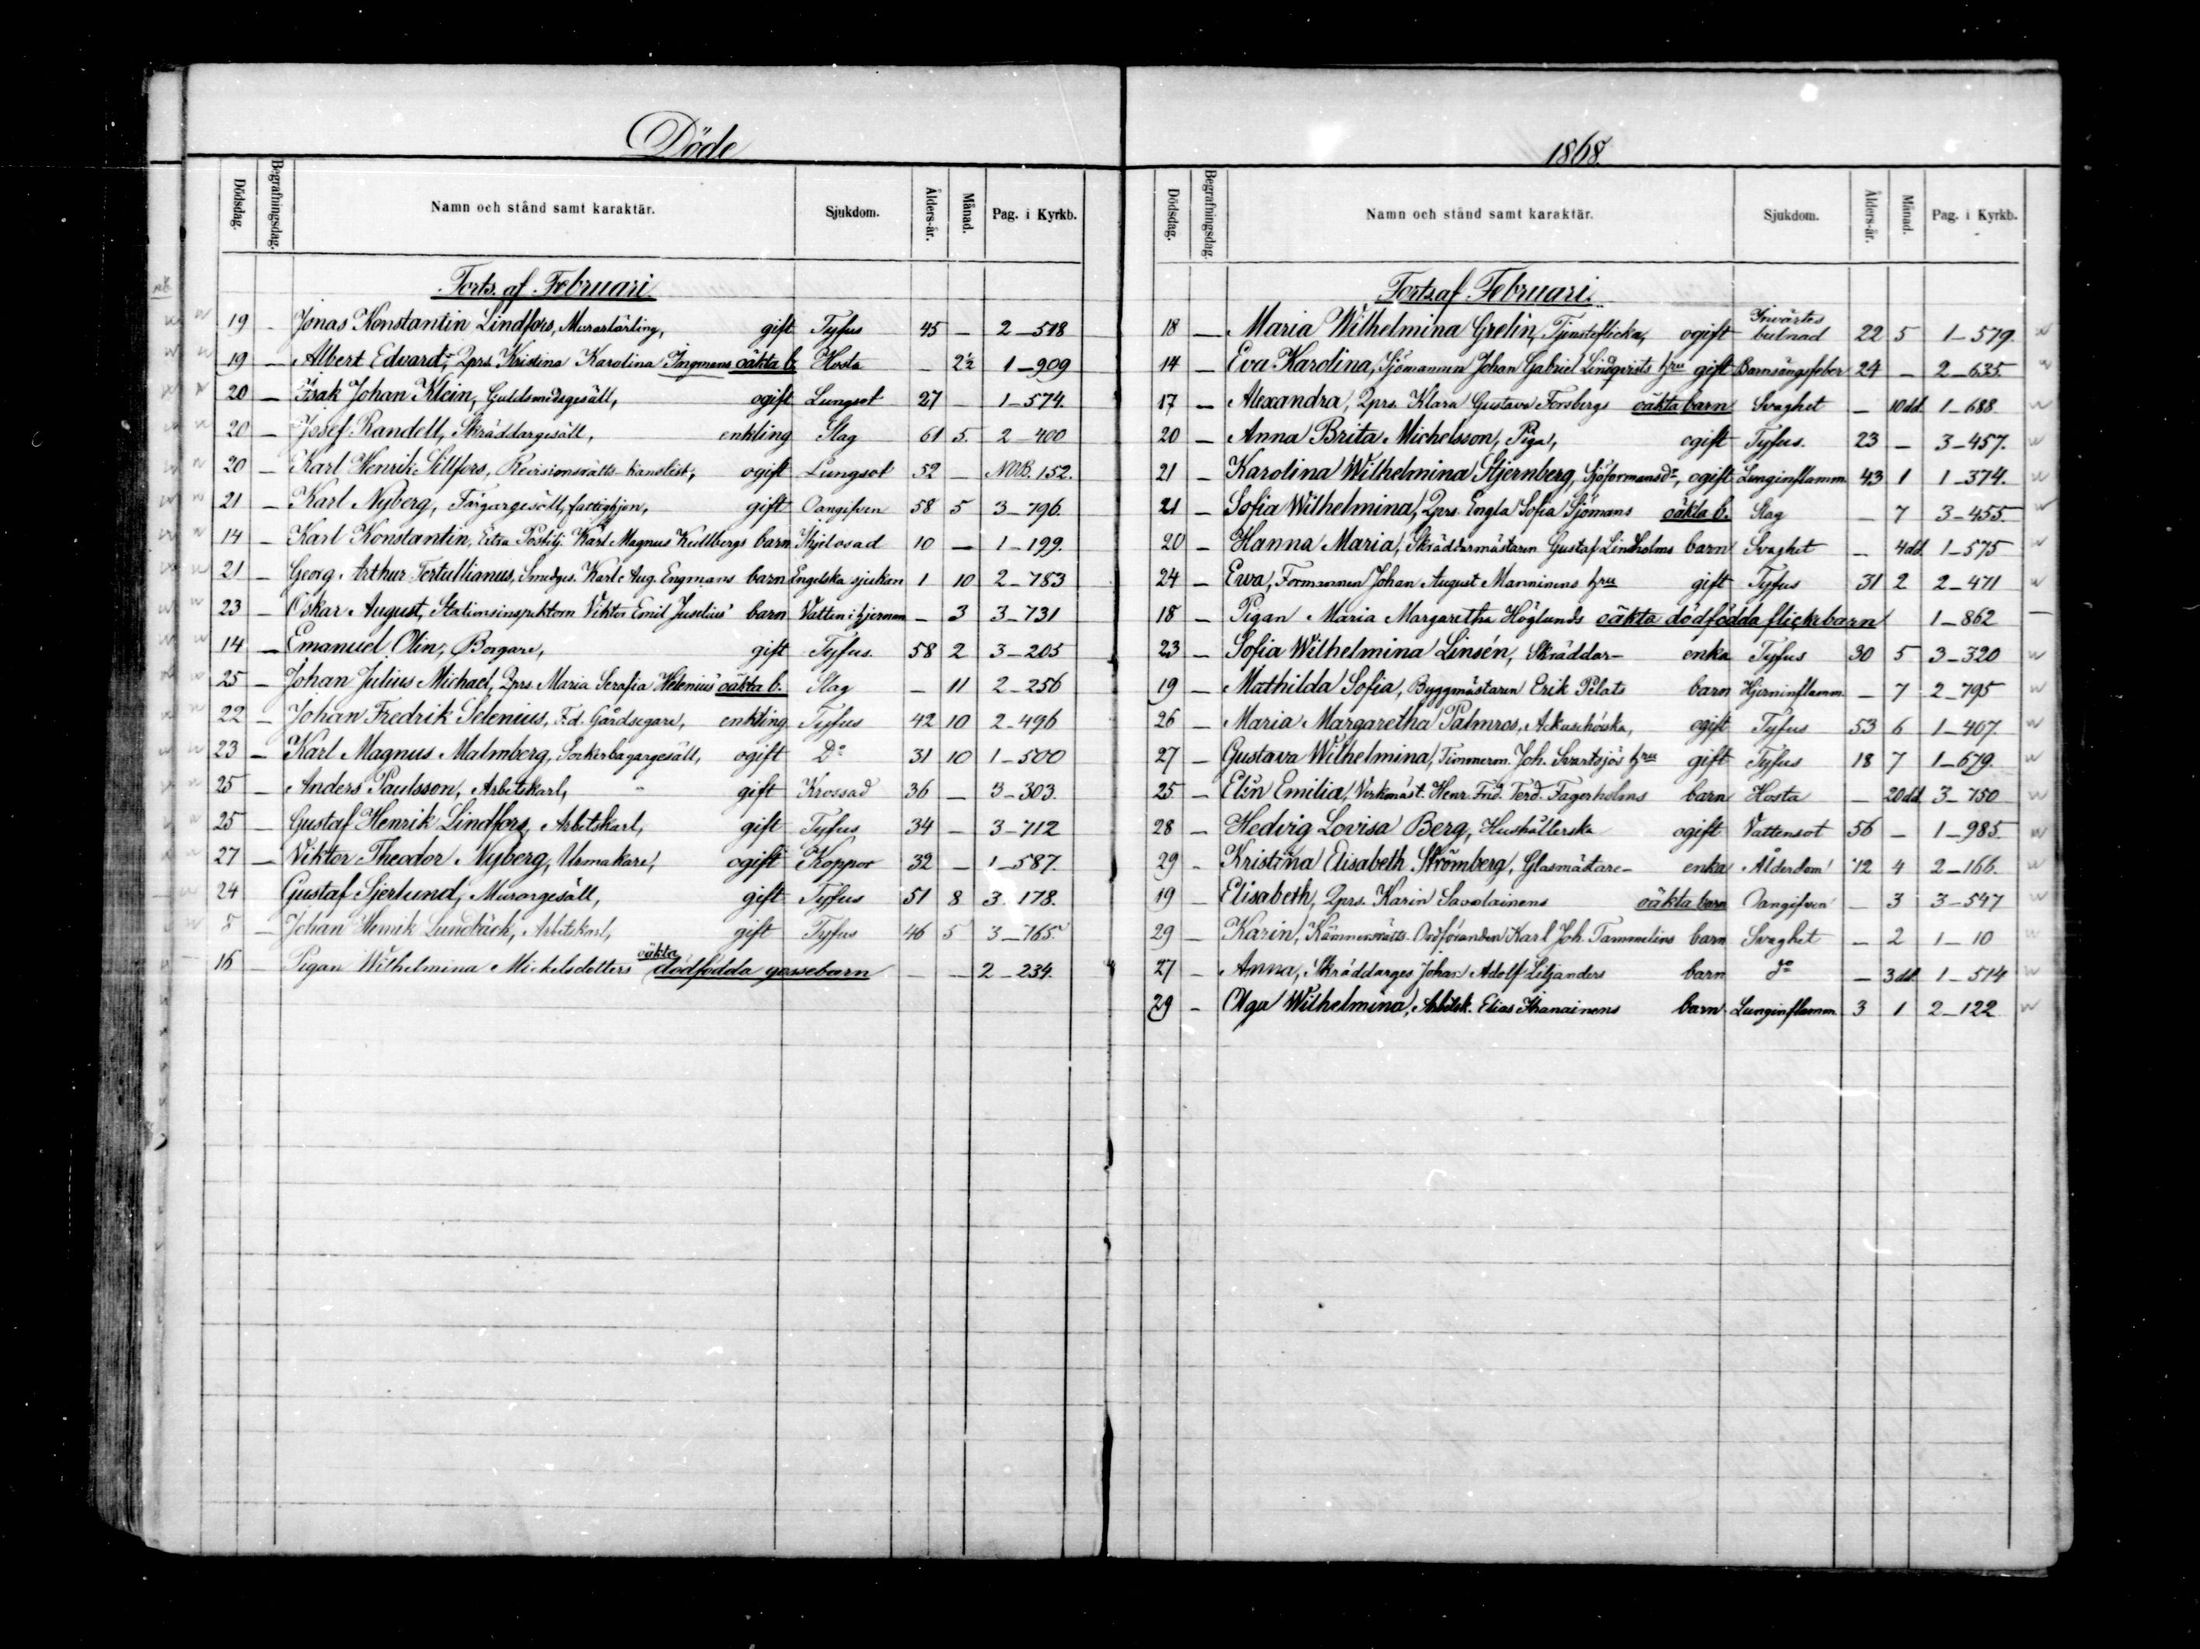 Döde
Dödsdag. Begrafningsdag. Namn och stånd samt karaktär. Sjukdom. Ålders-år. Månad. Pag. i Kyrkb.
Forts. af Februari
19 - Jonas Konstantin Lindfors, Murarlärling, gift Tyfus 45 - 2-518
19 - Albert Edvard, Qprs. Kristina Karolina Ingmans oäkta b. Hosta - 2½ 1-909
20 - Isak Johan Klein, Guldsmedsgesäll, ogift Lungsot 27 - 1-574.
20 - Josef Randell, Skräddargesäll, enkling Slag 61 5. 2-400
20 - Karl Henrik Sillfors, Revisionsrätts-kanslist, ogift Lungsot 52 - 152.
21 - Karl Nyberg, Färgargesäll, fattighjon, gift Oangifven 58 5 3-796
14 - Karl Konstantin, Extra Postilj. Karl Magnus Kullbergs barn Ihjelosad 10 - 1-199.
21 - Georg Arthur Tertullianus, Smedges. Karl Aug. Engmans barn Engelska sjukan 1 10 2-783
23 - Oskar August, Stationsinspektorn Viktor Emil Juselius' barn Vatten i hjernan - 3 3-731
14 - Emanuel Olin, Borgare, gift Tyfus. 58 2 3-205
25 - Johan Julius Michael, Qprs. Maria Serafia Helenius' oäkta b. Slag - 11 2-256
22 - Johan Fredrik Selenius, F.d. Gårdsegare, enkling Tyfus 42 10 2-496
23 - Karl Magnus Malmberg, Sockerbagargesäll, ogift Do 31 10 1-500
25 - Anders Paulsson, Arbetskarl, gift Krossad 36 - 3-303.
25 - Gustaf Henrik Lindfors, Arbetskarl, gift Tyfus 34 - 3-712
27 - Viktor Theodor Nyberg, Urmakare, ogift Koppor 32 - 1-587.
24 Gustaf Sjerlund, Murargesäll, gift Tyfus 51 8 3-178.
5 - Johan Henrik Lundbäck, Arbetskarl, gift Tyfus 46 5 3-765.
16 - Pigan Wilhelmina Mickelsdotters oäkta dödfödda gossebarn - - 2-234.
1868.
Dödsdag. Begrafningsdag. Namn och stånd samt karaktär. Sjukdom. Ålders-år. Månad. Pag. i Kyrkb.
Forts. af Februari.
18 - Maria Wilhelmina Grelin, Tjensteflicka, ogift Invärtes bulnad 22 5 1-579.
14 - Eva Karolina, Sjömannen Johan Gabriel Lindqvists hru gift Barnsängsfeber 24 - 2-635.
17 - Alexandra, Qprs. Klara Gustava Forsbergs oäkta barn Svaghet - 10 dd. 1-688
20 - Anna Brita Michelsson, Piga, ogift Tyfus. 23 - 3-457.
21 - Karolina Wilhelmina Stjernberg, Sjöformansdr, ogift Lunginflamm. 43 1 1-374.
21 - Sofia Wilhelmina, Qprs. Engla Sofia Sjömans oäkta b. Slag - 7 3-455.
20 - Hanna Maria, Skräddarmästaren Gustaf Lindholms barn Svaghet - 4 dd. 1-575
24 - Ewa, Formannen Johan August Manninens hru gift Tyfus 31 2 2-471
18 - Pigan Maria Margaretha Höglunds oäkta dödfödda flickebarn 1-862
23 - Sofia Wilhelmina Linsén, Skräddar- enka Tyfus 30 5 3-320
19 - Mathilda Sofia, Byggmästaren Erik Pilats barn Hjerninflamm. - 7 2-795
26 - Maria Margaretha Palmros, ogift Tyfus 53 6 1-407.
27 - Gustava Wilhelmina, Timmerm. Joh. Svartsjös hru gift Tyfus 18 7 1-679.
25 - Elin Emilia, Verkmäst. Henr. Frid. Ferd. Fagerholms barn Hosta - 20 dd. 3-750
28 - Hedvig Lovisa Berg, Hushållerska ogift Vattensot 56 - 1-985.
29 - Kristina Elisabeth Strömberg, Glasmästare- enka Ålderdom 72 4 2-166.
19 - Elisabeth, Qprs. Karin Savolainens oäkta barn Oangifven - 3 3-547
29 - Karin, Kämnersrätts-Ordföranden Karl Joh. Tammelins barn Svaghet - 2 1-10
27 - Anna, Skräddarges. Johan Adolf Liljanders barn do - 3 dd. 1-514
29 - Olga Wilhelmina, Arbetsk. Elias Ihanainens barn Lunginflamm. 3 1 2-122